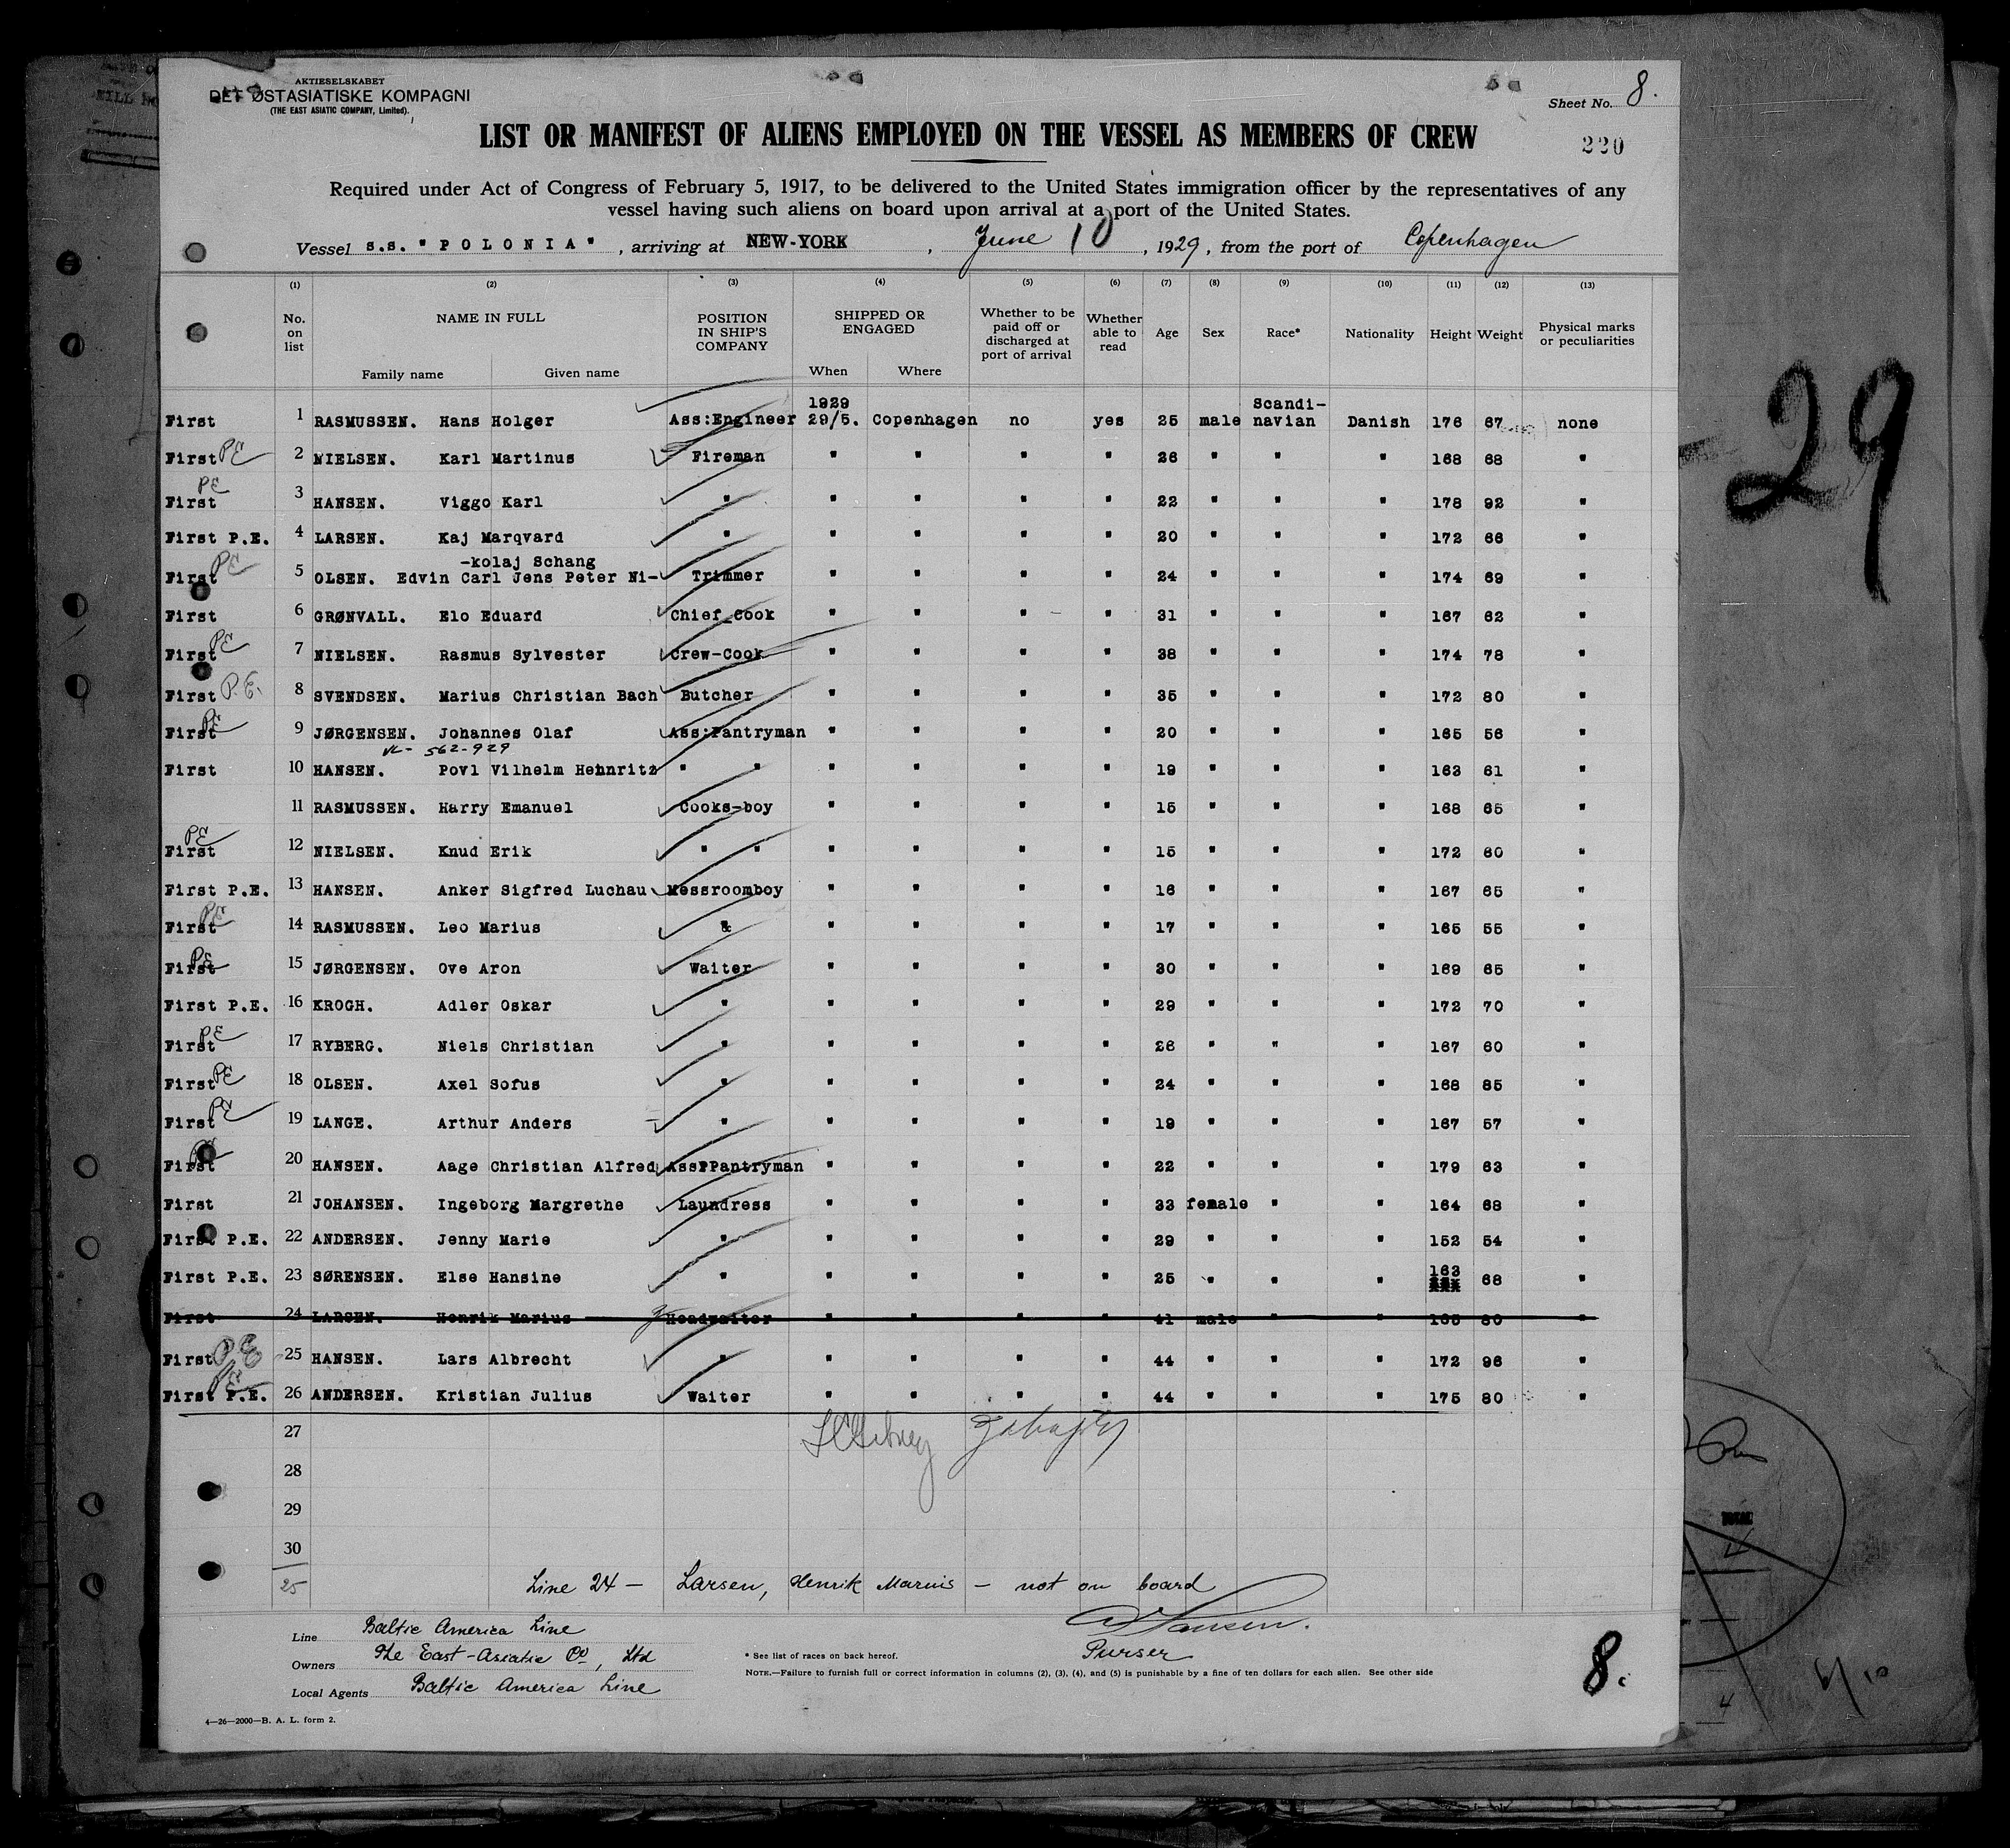 AKTIESELSKABET
DET ØSTASIATISKE KOMPAGNI
(THE EAST ASIATIC COMPANY, Limited).
Sheet No. 8.
LIST OR MANIFEST OF ALIENS EMPLOYED ON THE VESSEL AS MEMBERS OF CREW
220
Required under Act of Congress of February 5, 1917, to be delivered to the United States immigration officer by the representatives of any
vessel having such aliens on board upon arrival at a port of the United States.
Vessel s.s. "POLONIA", arriving at NEW-YORK, June 10, 1929, from the port of Copenhagen
(1) (2) (3) (4) (5) (6) (7) (8) (9) (10) (11) (12) (13)
No. on list NAME IN FULL Family name Given name POSITION IN SHIP'S COMPANY SHIPPED OR ENGAGED When Where Whether to be paid off or discharged at port of arrival Whether able to read Age Sex Race* Nationality Height Weight Physical marks or peculiarities
First 1 RASMUSSEN. Hans Holger Ass:Engineer 1929 29/5. Copenhagen no yes 25 male Scandi-navian Danish 176 67 none
First PE 2 NIELSEN. Karl Martinus Fireman " " " " 26 " " " 168 68 "
First PE 3 HANSEN. Viggo Karl " " " " " 22 " " " 178 92 "
First P.E. 4 LARSEN. Kaj Marqvard " " " " " 20 " " " 172 66 "
-kolaj Schang
First PE 5 OLSEN. Edvin Carl Jens Peter Ni- Trimmer " " " " 24 " " " 174 69 "
First 6 GRØNVALL. Elo Eduard Chief Cook " " " " 31 " " " 167 62 "
First PE 7 NIELSEN. Rasmus Sylvester Crew-Cook " " " " 38 " " " 174 78 "
First P.E. 8 SVENDSEN. Marius Christian Bach Butcher " " " " 35 " " " 172 80 "
First PE 9 JØRGENSEN. Johannes Olaf Ass:Pantryman " " " " 20 " " " 165 56 "
562-929
First 10 HANSEN. Povl Vilhelm Heinritz " " " " " " 19 " " " 163 61 "
11 RASMUSSEN. Harry Emanuel Cooks-boy " " " " 15 " " " 168 65 "
First PE 12 NIELSEN. Knud Erik " " " " " " 15 " " " 172 60 "
First P.E. 13 HANSEN. Anker Sigfred Luchau Messroomboy " " " " 16 " " " 167 65 "
First PE 14 RASMUSSEN. Leo Marius & " " " " 17 " " " 165 55 "
First PE 15 JØRGENSEN. Ove Aron Waiter " " " " 30 " " " 169 65 "
First P.E. 16 KROGH. Adler Oskar " " " " " 29 " " " 172 70 "
First PE 17 RYBERG. Niels Christian " " " " " 26 " " " 167 60 "
First PE 18 OLSEN. Axel Sofus " " " " " 24 " " " 168 85 "
First PE 19 LANGE. Arthur Anders " " " " " 19 " " " 167 57 "
First PE 20 HANSEN. Aage Christian Alfred Ass:Pantryman " " " " 22 " " " 179 63 "
First 21 JOHANSEN. Ingeborg Margrethe Laundress " " " " 33 female " " 164 68 "
First P.E. 22 ANDERSEN. Jenny Marie " " " " " 29 " " " 152 54 "
First P.E. 23 SØRENSEN. Else Hansine " " " " " 25 " " " 163 68 "
First 24 LARSEN. Henrik Marius Headwaiter " " " " 41 male " " 165 80 "
First PE 25 HANSEN. Lars Albrecht " " " " " 44 " " " 172 96 "
First P.E. PE 26 ANDERSEN. Kristian Julius Waiter " " " " 44 " " " 175 80 "
27
28
29
30
25
Line 24 - Larsen, Henrik Marius - not on board
Hansen.
Purser
Line Baltic America Line
Owners The East-Asiatic Co, Ltd
Local Agents Baltic America Line
* See list of races on back hereof.
NOTE.—Failure to furnish full or correct information in columns (2), (3), (4), and (5) is punishable by a fine of ten dollars for each alien. See other side
8.
4—26—2000—B. A. L. form 2.
29
TOTAL
4
6/10